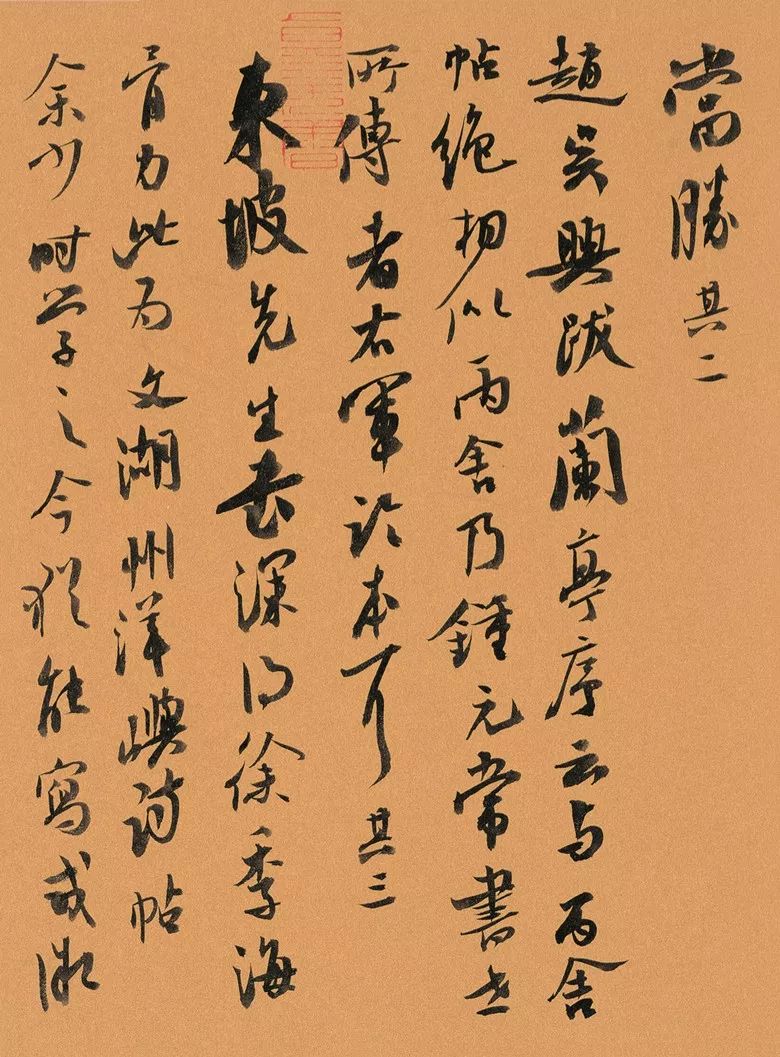 當勝其二
趙吳興跋蘭亭序云与丙舍
帖絕相似丙舍乃鍾元常書世
所傳者右軍臨本耳其三
東坡先生書深得徐季海
骨力此為文湖州洋嶼詩帖
余少時學之今猶能寫或微